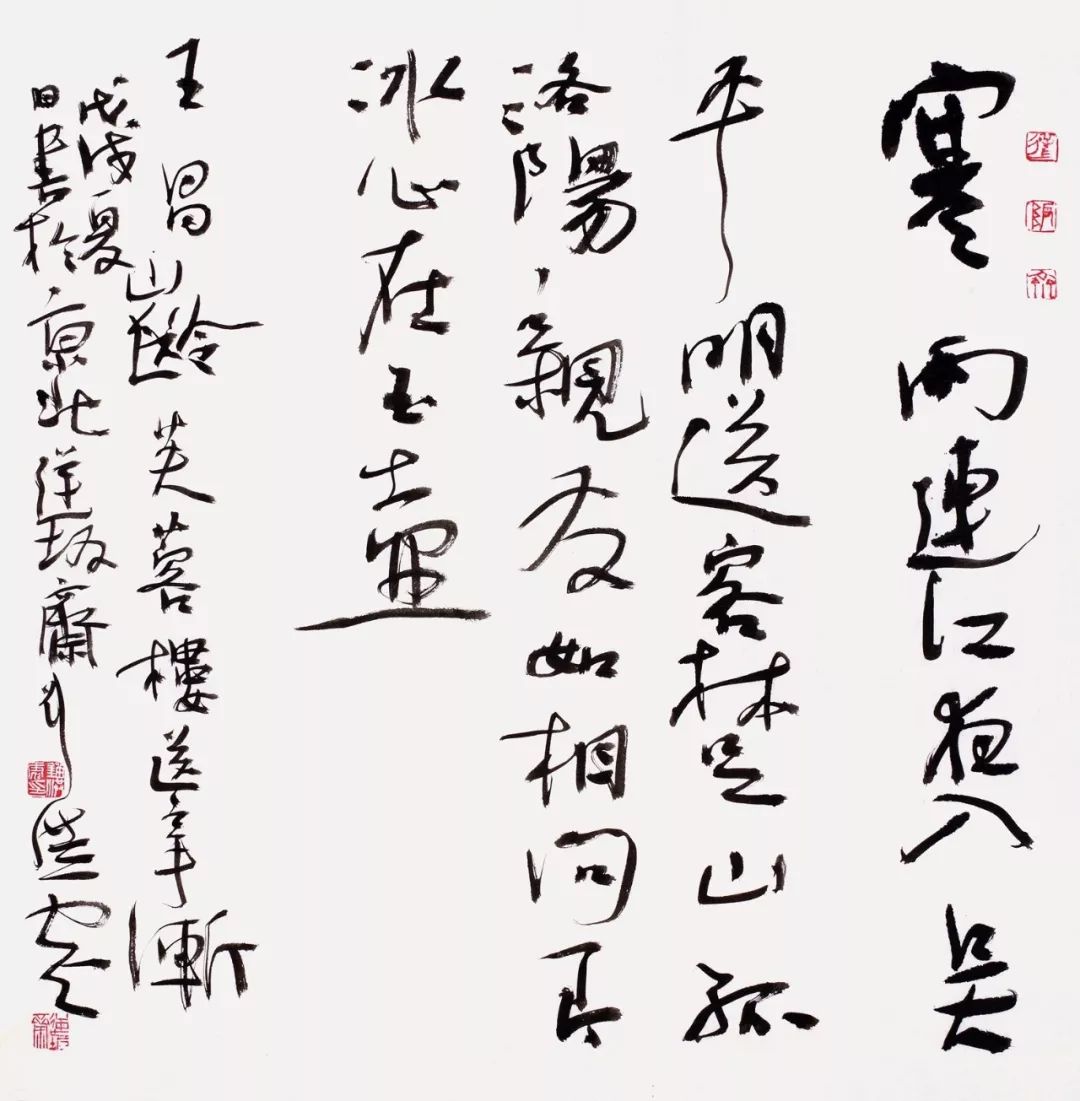 寒雨連江夜入吳
平明送客楚山孤
洛陽親友如相問一片
冰心在玉壺
王昌齡芙蓉樓送辛漸
戊戌夏
日書於京北